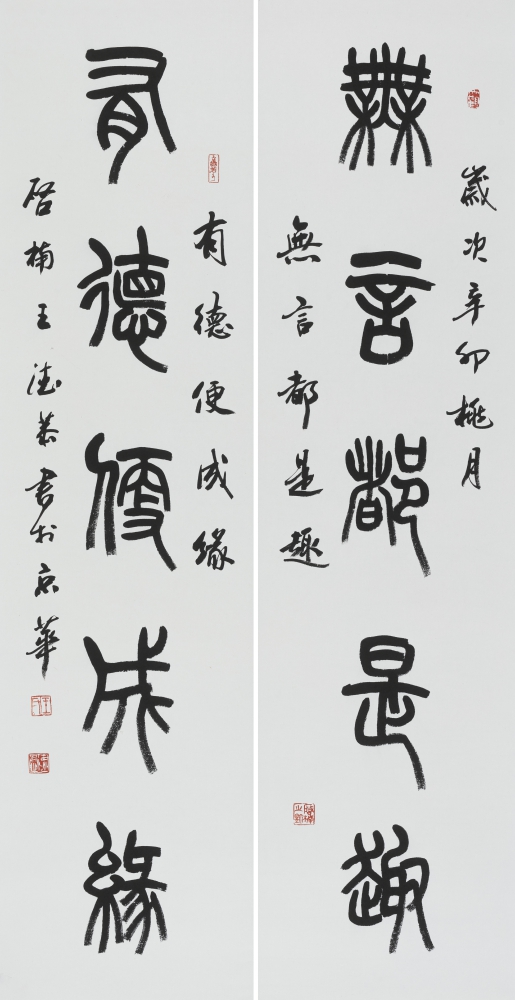 歲次辛卯桃月
無言都是趣
無言都是趣
有德便成緣
有德便成緣
啓楠王德恭書於京華